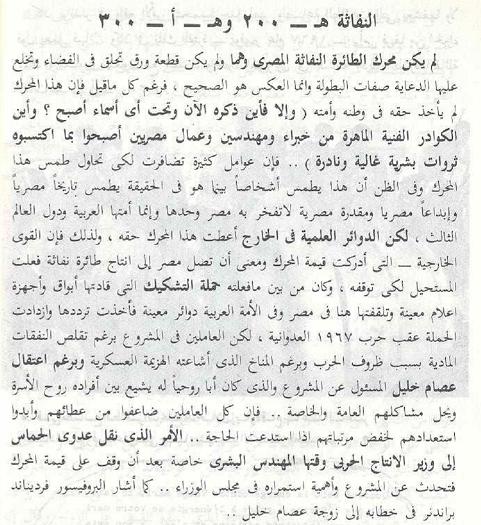 النفاثة هـ — ٢٠٠ وهـ — أ — ٣٠٠
لم يكن محرك الطائرة النفاثة المصرى وهما ولم يكن قطعة ورق تحلق فى الفضاء وتخلع
عليها الدعاية صفات البطولة وإنما العكس هو الصحيح ، فرغم كل ماقيل فإن هذا المحرك
لم يأخذ حقه فى وطنه وأمته ( وإلا فأين ذكره الآن وتحت أى أسماء أصبح ؟ وأين
الكوادر الفنية الماهرة من خبراء ومهندسين وعمال مصريين أصبحوا بما اكتسبوه
ثروات بشرية غالية ونادرة ) .. فإن عوامل كثيرة تضافرت لكى تحاول طمس هذا
المحرك وفى الظن أن هذا يطمس أشخاصاً بينما هو فى الحقيقة يطمس تاريخاً مصرياً
وإبداعاً مصريا ومقدرة مصرية لاتفخر به مصر وحدها وإنما أمتها العربية ودول العالم
الثالث ، لكن الدوائر العلمية فى الخارج أعطت هذا المحرك حقه ، ولذلك فإن القوى
الخارجية — التى أدركت قيمة المحرك ومعنى أن تصل مصر إلى انتاج طائرة نفاثة فعلت
المستحيل لكى توقفه ، وكان من بين مافعلته حملة التشكيك التى قادتها أبواق وأجهزة
اعلام معينة وتلقفتها هنا فى مصر وفى الأمة العربية دوائر معينة فأخذت ترددها وازدادت
الحملة عقب حرب ١٩٦٧ العدوانية ، لكن العاملين فى المشروع برغم تقلص النفقات
المادية بسبب ظروف الحرب وبرغم المناخ الذى أشاعته الهزيمة العسكرية وبرغم اعتقال
عصام خليل المسئول عن المشروع والذى كان أبا روحياً له يشيع بين أفراده روح الأسرة
ويحل مشاكلهم العامة والخاصة .. فإن كل العاملين ضاعفوا من عطائهم وأبدوا
استعدادهم لخفض مرتباتهم اذا استدعت الحاجة .. الأمر الذى نقل عدوى الحماس
إلى وزير الانتاج الحربى وقتها المهندس البشرى خاصة بعد أن وقف على قيمة المحرك
فتحدث عن المشروع وأهمية استمراره فى مجلس الوزراء .. كما أشار البروفيسور فرديناند
براندنر فى خطابه إلى زوجة عصام خليل ..